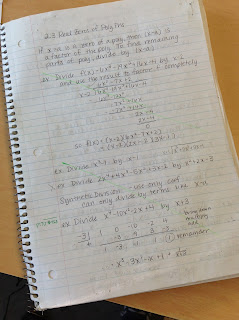 2.3 Real Zeros of Poly Fns
If x=a is a zero of a poly, then (x-a) is
a factor of the poly. To find remaining
parts of poly, divide by (x-a).
ex Divide f(x)=6x³-19x²+16x-4 by x-2
and use the result to factor f completely
6x²-7x+2
x-2 6x³-19x²+16x-4
6x³-12x²
-7x²+16x
-7x²+14x
2x-4
2x-4
so f(x)=(x-2)(6x²-7x+2)
ex Divide x³-1 by x-1
ex Divide 2x⁴+4x³-5x²+3x-2 by x²+2x-3
Synthetic Division - Use only coef.
can only divide by terms like x-a
ex Divide x⁴-10x²-2x+4 by x+3
-3 1 0 -10 -2 4
-3 9 3 -3
1 -3 -1 1 1 remainder
bring down
multiply
add
x³-3x²-x+1+ 1/x+3